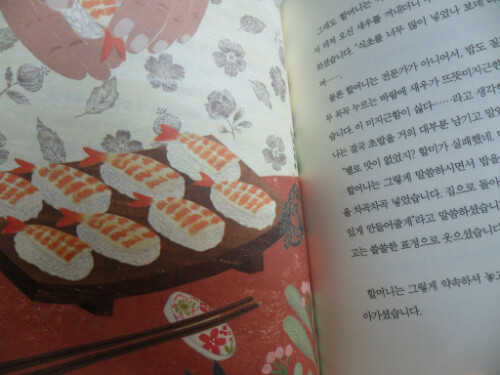 그래도 할머니는
서 데쳐 오신 새우를 꺼내더니
하셨습니다. "식초를 너무 많이 넣었나 보네
바……,
물론 할머니는 전문가가 아니어서, 밥도 질
무 꾹꾹 누르는 바람에 새우가 뜨뜻미지근한
습니다. 이 미지근함이 싫다……라고 생각
나는 결국 초밥을 거의 대부분 남기고 말았
"별로 맛이 없었지? 할미가 실패했네.
할머니는 그렇게 말씀하시면서 밥을
을 차곡차곡 넣었습니다. 집으로 돌아
있게 만들어줄게"라고 말씀하셨습니
고는 쓸쓸한 표정으로 웃으셨습니다
할머니는 그렇게 약속하셔 놓고
아가셨습니다.